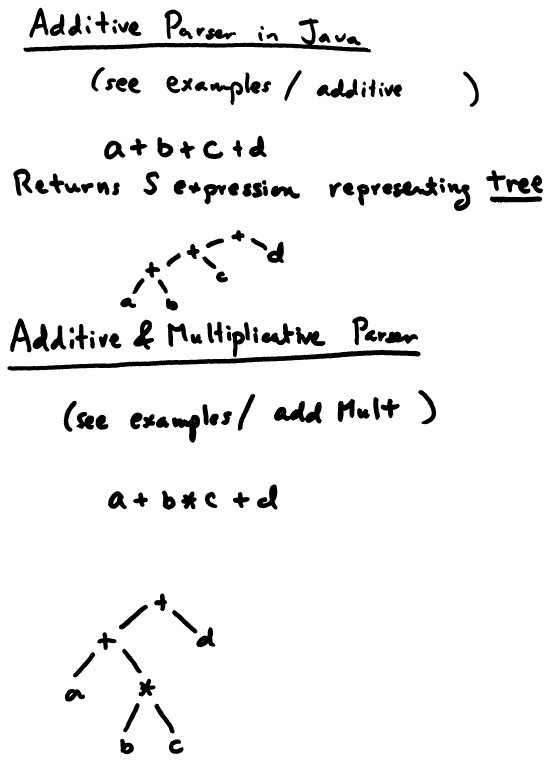 Additive Parser in Java
(see examples / additive )
a + b + c + d
Returns S expression representing tree
+
+ d
+ c
a b
Additive & Multiplicative Parser
(see examples / add Mult )
a + b * c + d
+
+ d
a *
b c